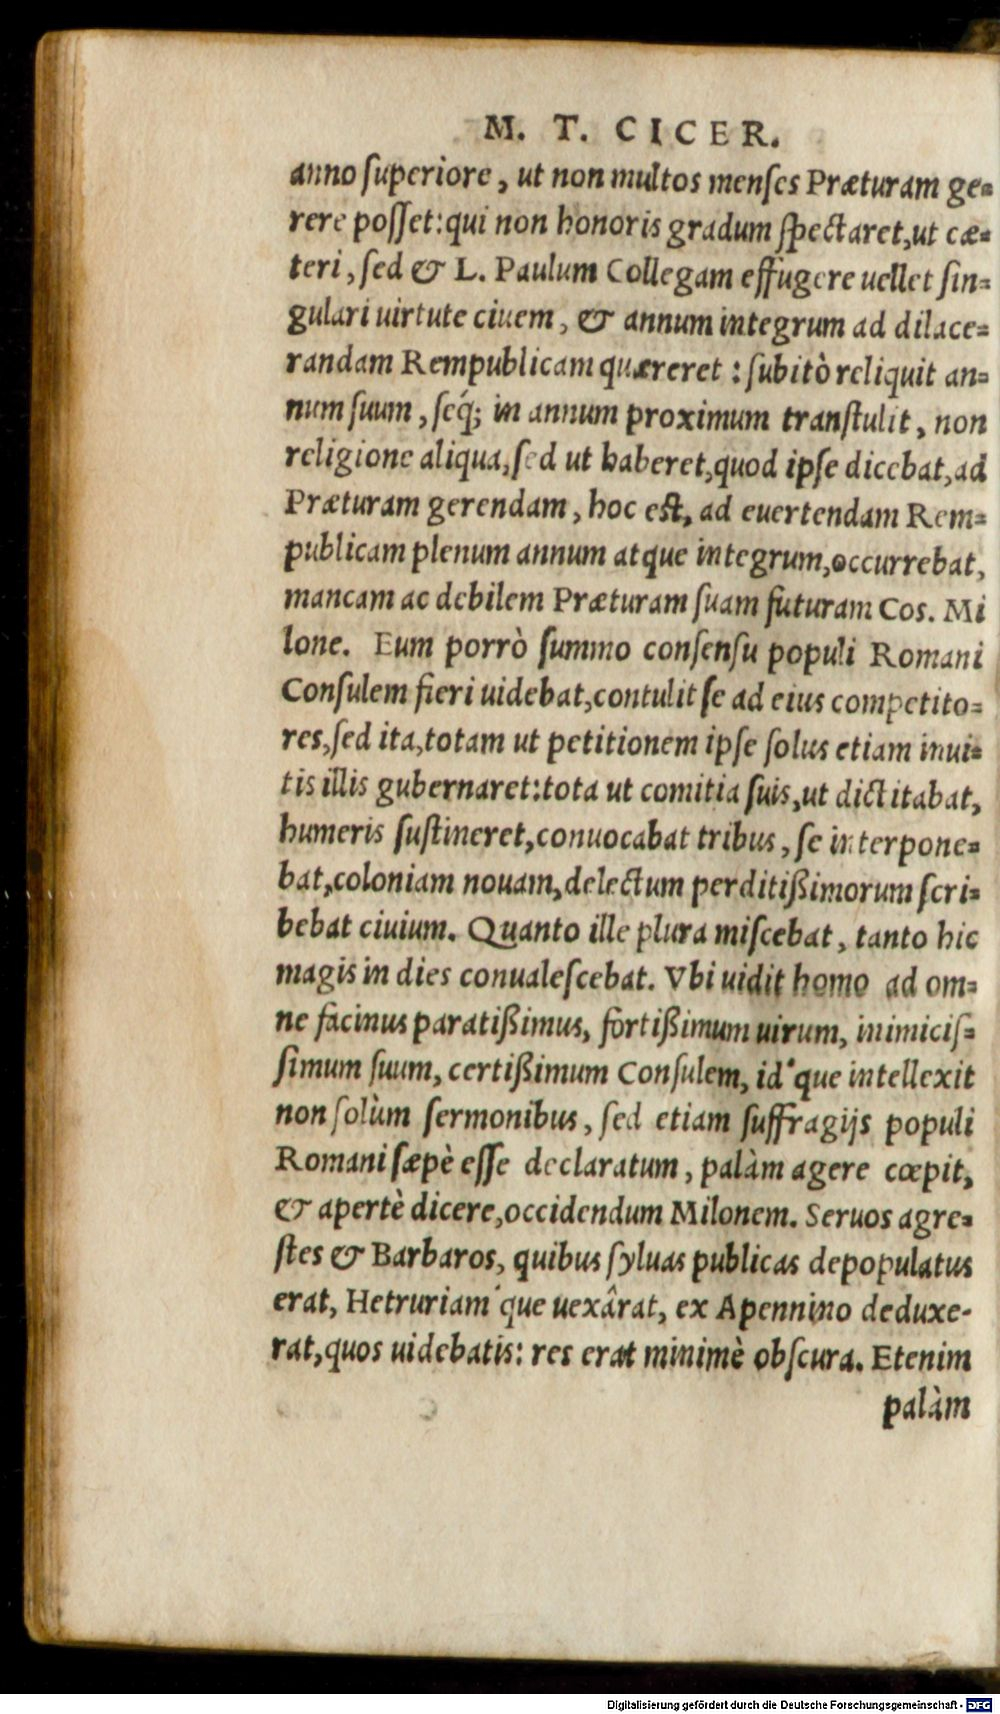 M. T. CICER.
anno ſuperiore, ut non multos menſes Præturam ge=
rere poſſet: qui non honoris gradum ſpectaret, ut cæ=
teri, ſed & L. Paulum Collegam effugere uellet ſin=
gulari uirtute ciuem, & annum integrum ad dilace=
randam Rempublicam quæreret: ſubitò reliquit an=
num ſuum, ſeq́; in annum proximum tranſtulit, non
religione aliqua, ſed ut haberet, quod ipſe dicebat, ad
Præturam gerendam, hoc eſt, ad euertendam Rem=
publicam plenum annum atque integrum, occurrebat,
mancam ac debilem Præturam ſuam futuram Cos. Mi
lone. Eum porrò ſummo conſenſu populi Romani
Conſulem fieri uidebat, contulit ſe ad eius competito=
res, ſed ita, totam ut petitionem ipſe ſolus etiam inui=
tis illis gubernaret: tota ut comitia ſuis, ut dictitabat,
humeris ſuſtineret, conuocabat tribus, ſe interpone=
bat, coloniam nouam, delectum perditißimorum ſcri=
bebat ciuium. Quanto ille plura miſcebat, tanto hic
magis in dies conualeſcebat. Vbi uidit homo ad om=
ne facinus paratißimus, fortißimum uirum, inimiciſ=
ſimum ſuum, certißimum Conſulem, id'que intellexit
non ſolùm ſermonibus, ſed etiam ſuffragijs populi
Romani ſæpè eſſe declaratum, palàm agere cœpit,
& apertè dicere, occidendum Milonem. Seruos agre=
ſtes & Barbaros, quibus ſyluas publicas depopulatus
erat, Hetruriam'que uexârat, ex Apennino deduxe-
rat, quos uidebatis: res erat minimè obſcura. Etenim
palàm
Digitalisierung gefördert durch die Deutsche Forschungsgemeinschaft - DFG